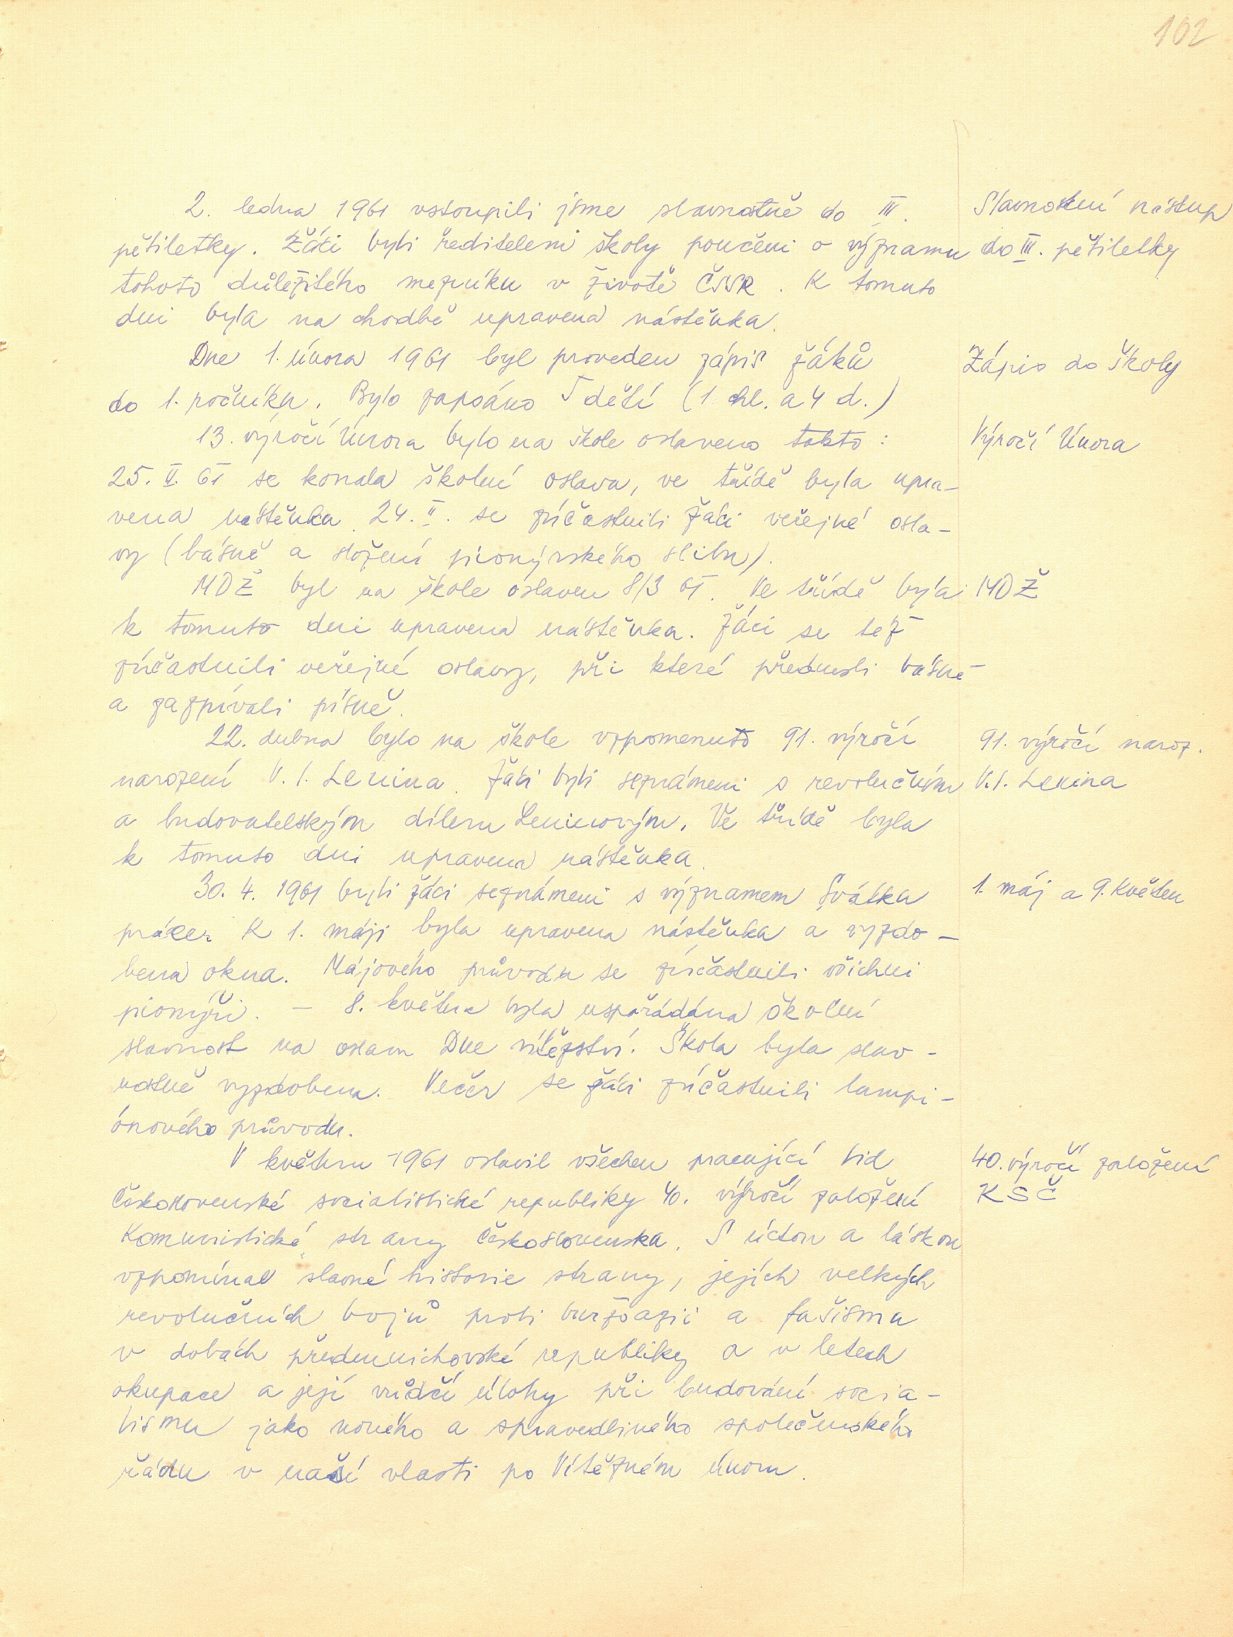 102
2. ledna 1961 vstoupili jsme slavnostně do III.
pětiletky. Žáci byli ředitelem školy poučeni o významu
tohoto důležitého mezníku v životě ČSSR. K tomuto
dni byla na chodbě upravena nástěnka.
Slavnostní nástup
do III. pětiletky
Dne 1. února 1961 byl proveden zápis žáků
do 1. ročníku. Bylo zapsáno 5 dětí (1 chl. a 4 d.)
Zápis do školy
13. výročí Února bylo na škole oslaveno takto:
25. II. 61 se konala školní oslava, ve třídě byla upra-
vena nástěnka. 24. II. se zúčastnili žáci veřejné osla-
vy (básně a složení pionýrského slibu).
Výročí Února
MDŽ byl na škole oslaven 8/3 61. Ve třídě byla
k tomuto dni upravena nástěnka. Žáci se též
zúčastnili veřejné oslavy, při které přednesli básně
a zazpívali písně.
MDŽ
22. dubna bylo na škole vzpomenuto 91. výročí
narození V. I. Lenina. Žáci byli seznámeni s revolučním
a budovatelským dílem Leninovým. Ve třídě byla
k tomuto dni upravena nástěnka.
91. výročí naroz.
V. I. Lenina
30. 4. 1961 byli žáci seznámeni s významem Svátku
práce. K 1. máji byla upravena nástěnka a vyzdo-
bena okna. Májového průvodu se zúčastnili všichni
pionýři. – 8. května byla uspořádána školní
slavnost na oslavu Dne vítězství. Škola byla slav-
nostně vyzdobena. Večer se žáci zúčastnili lampi-
ónového průvodu.
1. máj a 9. květen
V květnu 1961 oslavil všechen pracující lid
Československé socialistické republiky 40. výročí založení
Komunistické strany Československa. S úctou a láskou
vzpomínal slavné historie strany, jejích velkých
revolučních bojů proti buržoazii a fašismu
v dobách předmnichovské republiky a v letech
okupace a její vůdčí úlohy při budování socia-
lismu jako nového a spravedlivého společenského
řádu v naší vlasti po Vítězném únoru.
40. výročí založení
KSČ